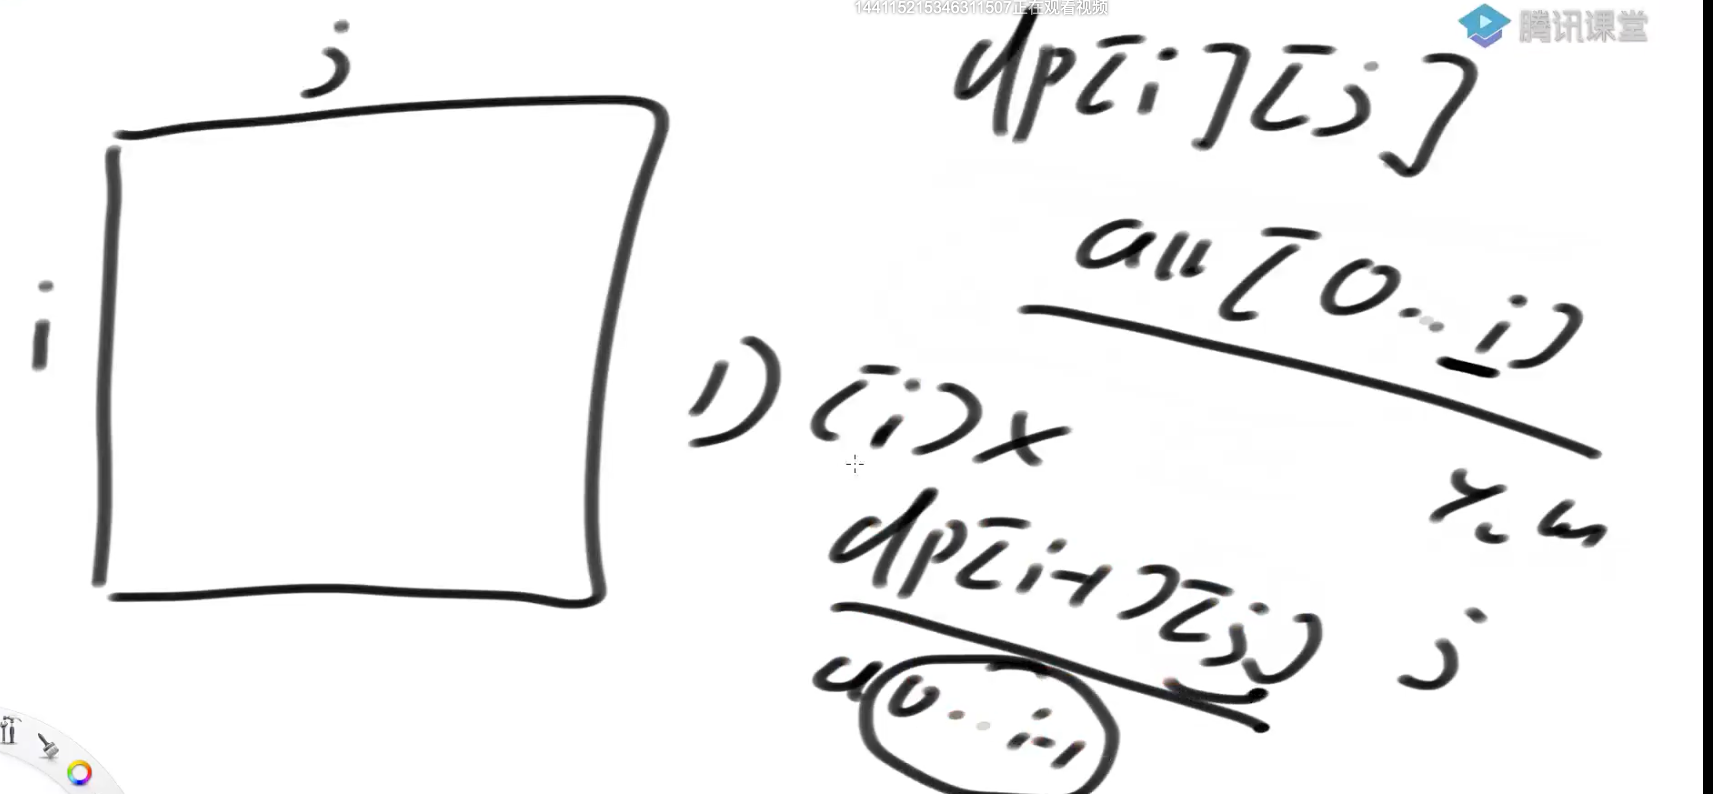 144115215346311507正在观看视频
腾讯课堂
j
dp[i][j]
arr[0...i]
i
1) [i] x
dp[i-1][j]
j
0...i-1